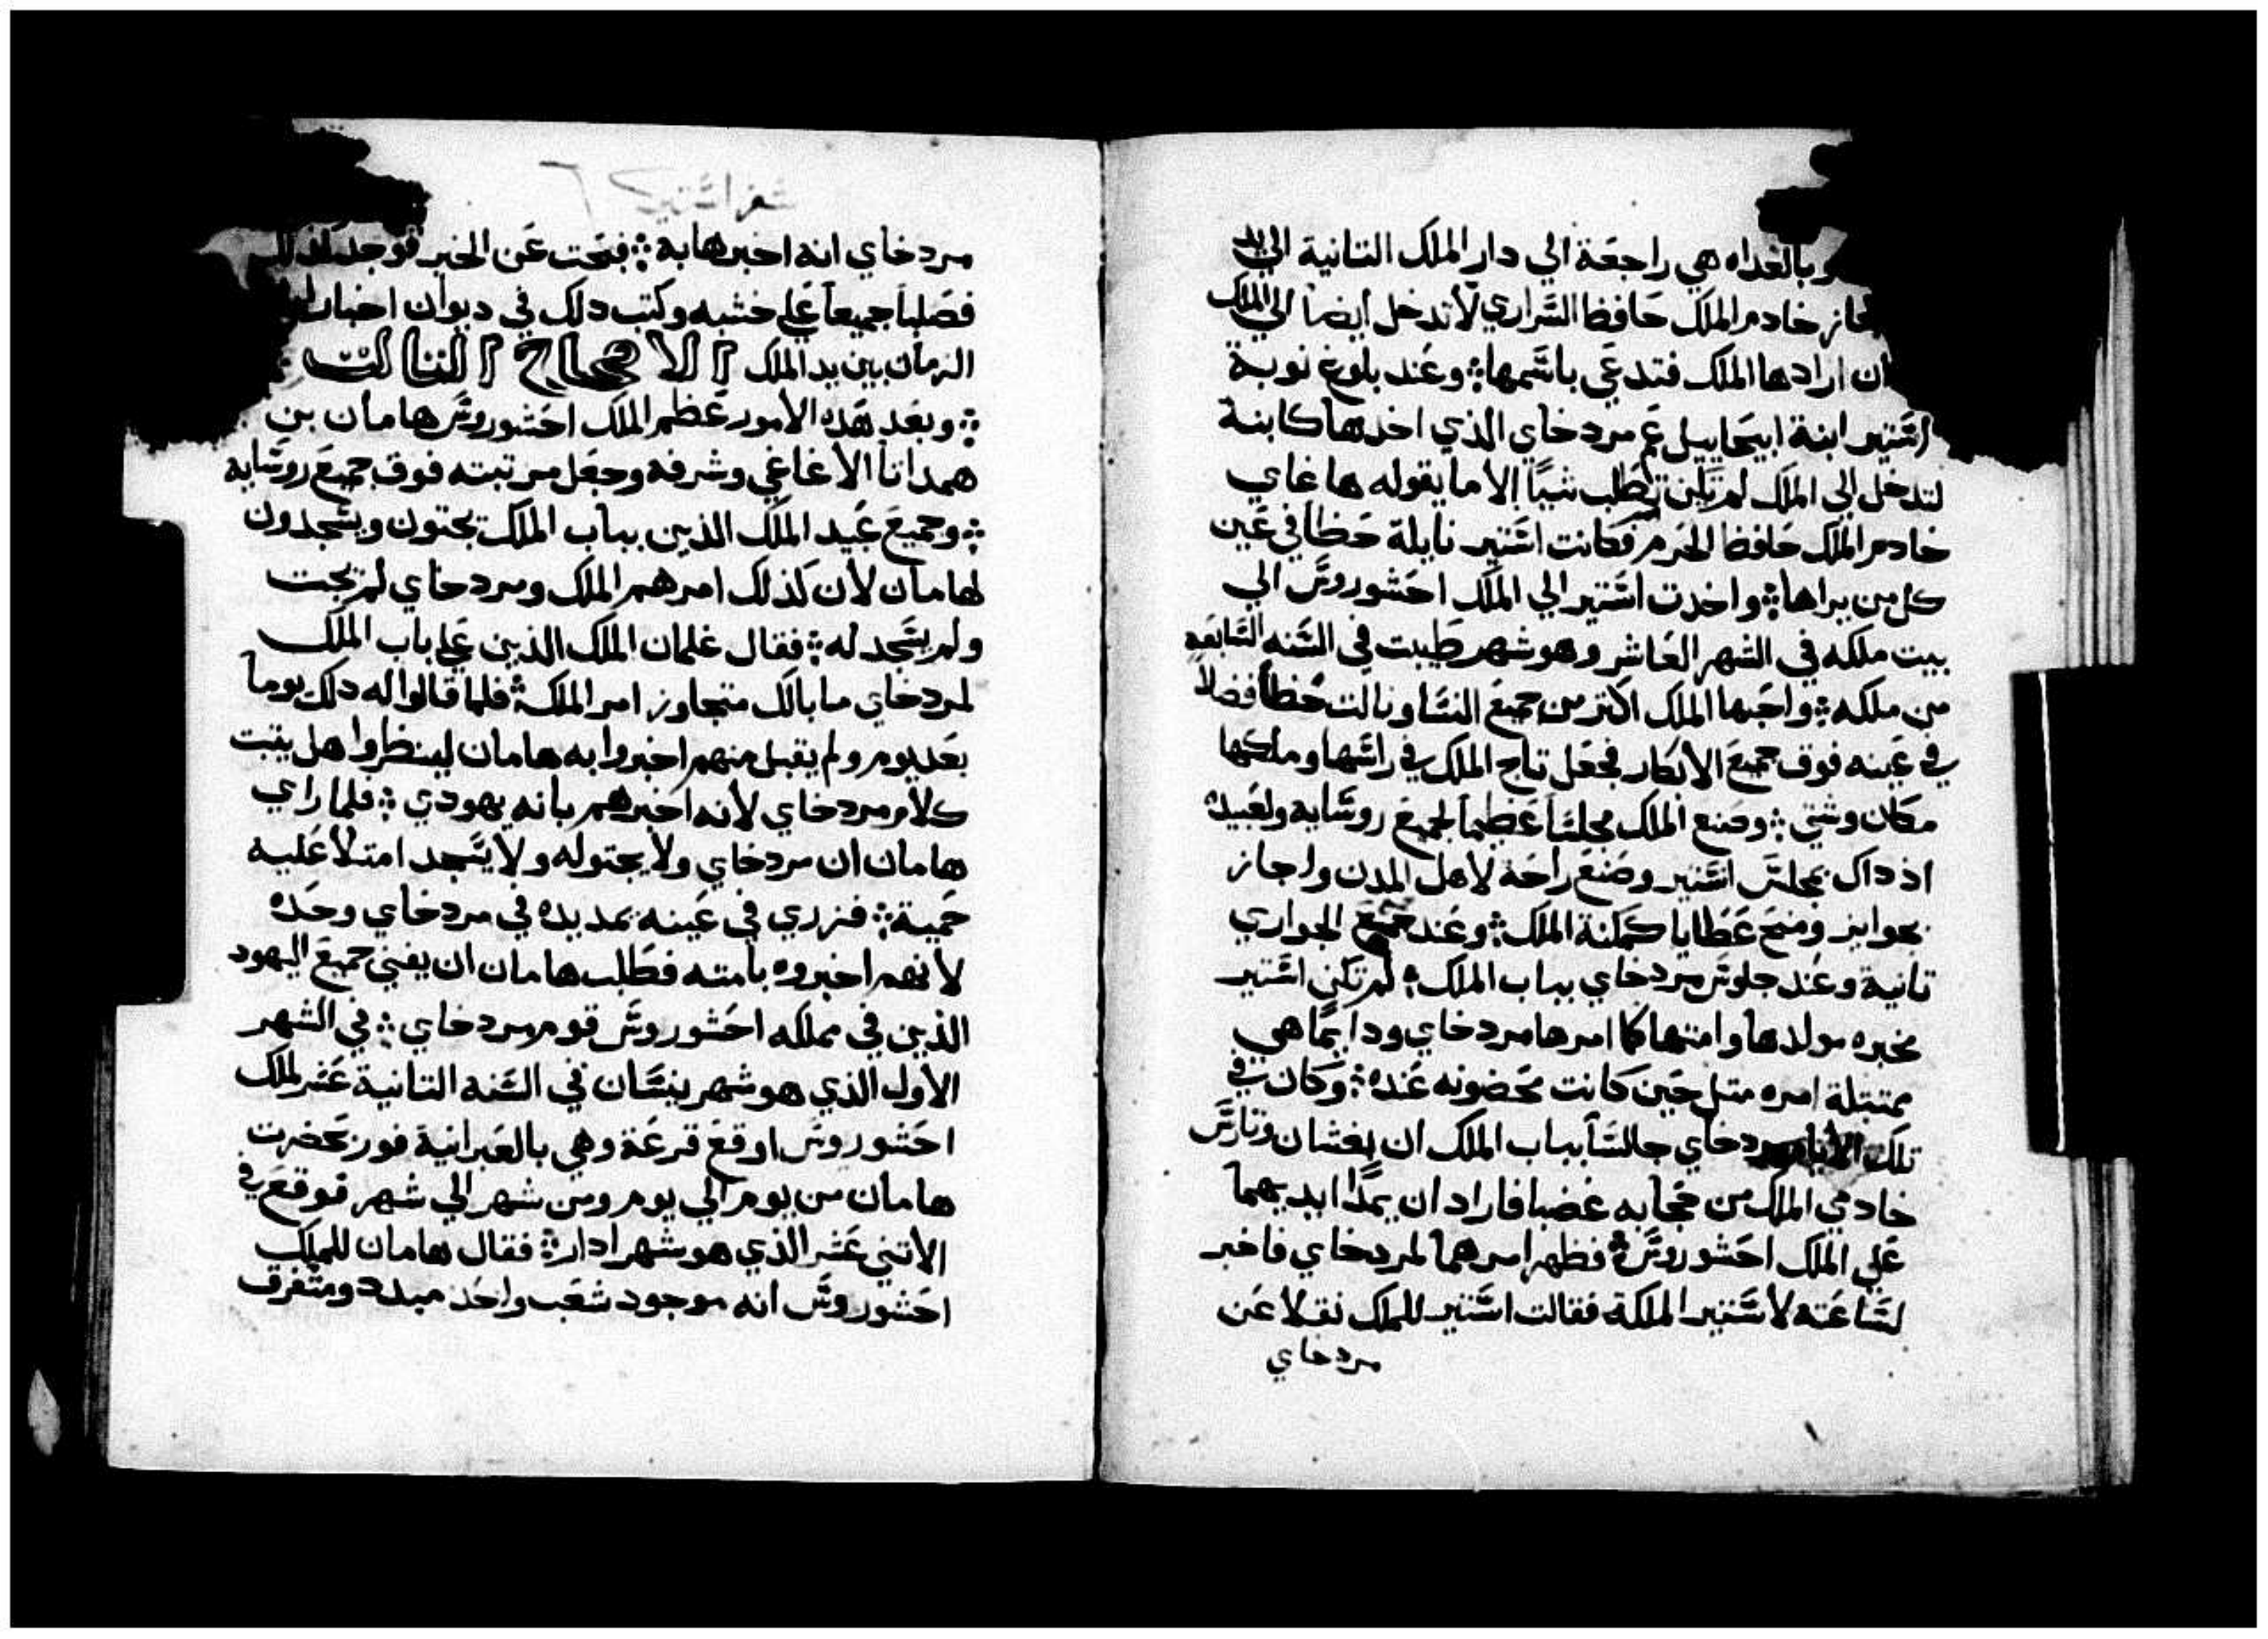 وبالغداه هي راجعة الي دار الملك التانية الي يد
خادم الملك حافظ السراري لا تدخل ايضا الي الملك
ان ارادها الملك فتدعي باسمها ؛ وعند بلوغ نوبة
استير ابنة ابيحاييل عم مردخاي الذي اخدها كابنة
لتدخل الي الملك لم تكن تطلب شيا الا ما يقوله هاغاي
خادم الملك حافظ الحرم فكانت استير نايلة حظا في عين
كل من يراها ؛ واخدت استير الي الملك احشوروش الي
بيت ملكه في الشهر العاشر وهو شهر طيبت في السنه السابعه
من ملكه ؛ واحبها الملك اكتر من جميع النسا ونالت حظا فضلا
في عينه فوق جميع الابكار فجعل تاج الملك في راسها وملكها
مكان وشتي ؛ وصنع الملك مجلسا عظيما لجميع روسايه ولعبيده
اد داك بمجلس استير وصنع راحة لاهل المدن واجاز
بجوايز ومنح عطايا كمكنة الملك ؛ وعند جميع الجواري
تانية وعند جلوس مردخاي بباب الملك ؛ لم تكن استير
مخبره مولدها وامتها كما امرها مردخاي ودايما هي
ممتتلة امره متل حين كانت محضونه عنده ؛ وكان في
تلك الايام مردخاي جالسا بباب الملك ان بغشان وتارس
خادمي الملك من حجابه غضبا فارادان يمدا ايديهما
علي الملك احشوروش ؛ فظهر امرهما لمردخاي فاخبر
لساعته لاستير الملكة فقالت استير للملك نقلا عن
مردخاي
سفر استير ٦
مردخاي انه اخبرها به ؛ فبحت عن الخبر فوجد
فصلبا جميعا علي خشبه وكتب دلك في ديوان اخبار
الزمان بين يد الملك الاصحاح التالت
؛ وبعد هده الامور عظم الملك احشوروش هامان بن
همداتا الاغاغي وشرفه وجعل مرتبته فوق جميع روسايه
؛ وجميع عبيد الملك الذين بباب الملك يجتون ويسجدون
لهامان لان كذلك امرهم الملك ومردخاي لم يجت
ولم يسجد له ؛ فقال غلمان الملك الذين علي باب الملك
لمردخاي ما بالك متجاوز امر الملك ؛ فلما قالوا له دلك يوما
بعد يوم ولم يقبل منهم اخبروا به هامان لينظروا هل يتبت
كلام مردخاي لانه اخبرهم بانه يهودي ؛ فلما راي
هامان ان مردخاي ولا يجتوله ولا يسجد امتلا عليه
حمية ؛ فزري في عينه بمد يده في مردخاي وحده
لانهم اخبروه بامته فطلب هامان ان يفني جميع اليهود
الذين في مملكه احشوروش قوم مردخاي ؛ في الشهر
الاول الذي هو شهر نيسان في السنه التانية عشر للملك
احشوروش اوقع قرعة وهي بالعبرانية فور بحضرت
هامان من يوم الي يوم ومن شهر الي شهر فوقع في
الاتني عشر الذي هو شهر ادار ؛ فقال هامان للملك
احشوروش انه موجود شعب واحد مبدد ومتفرق